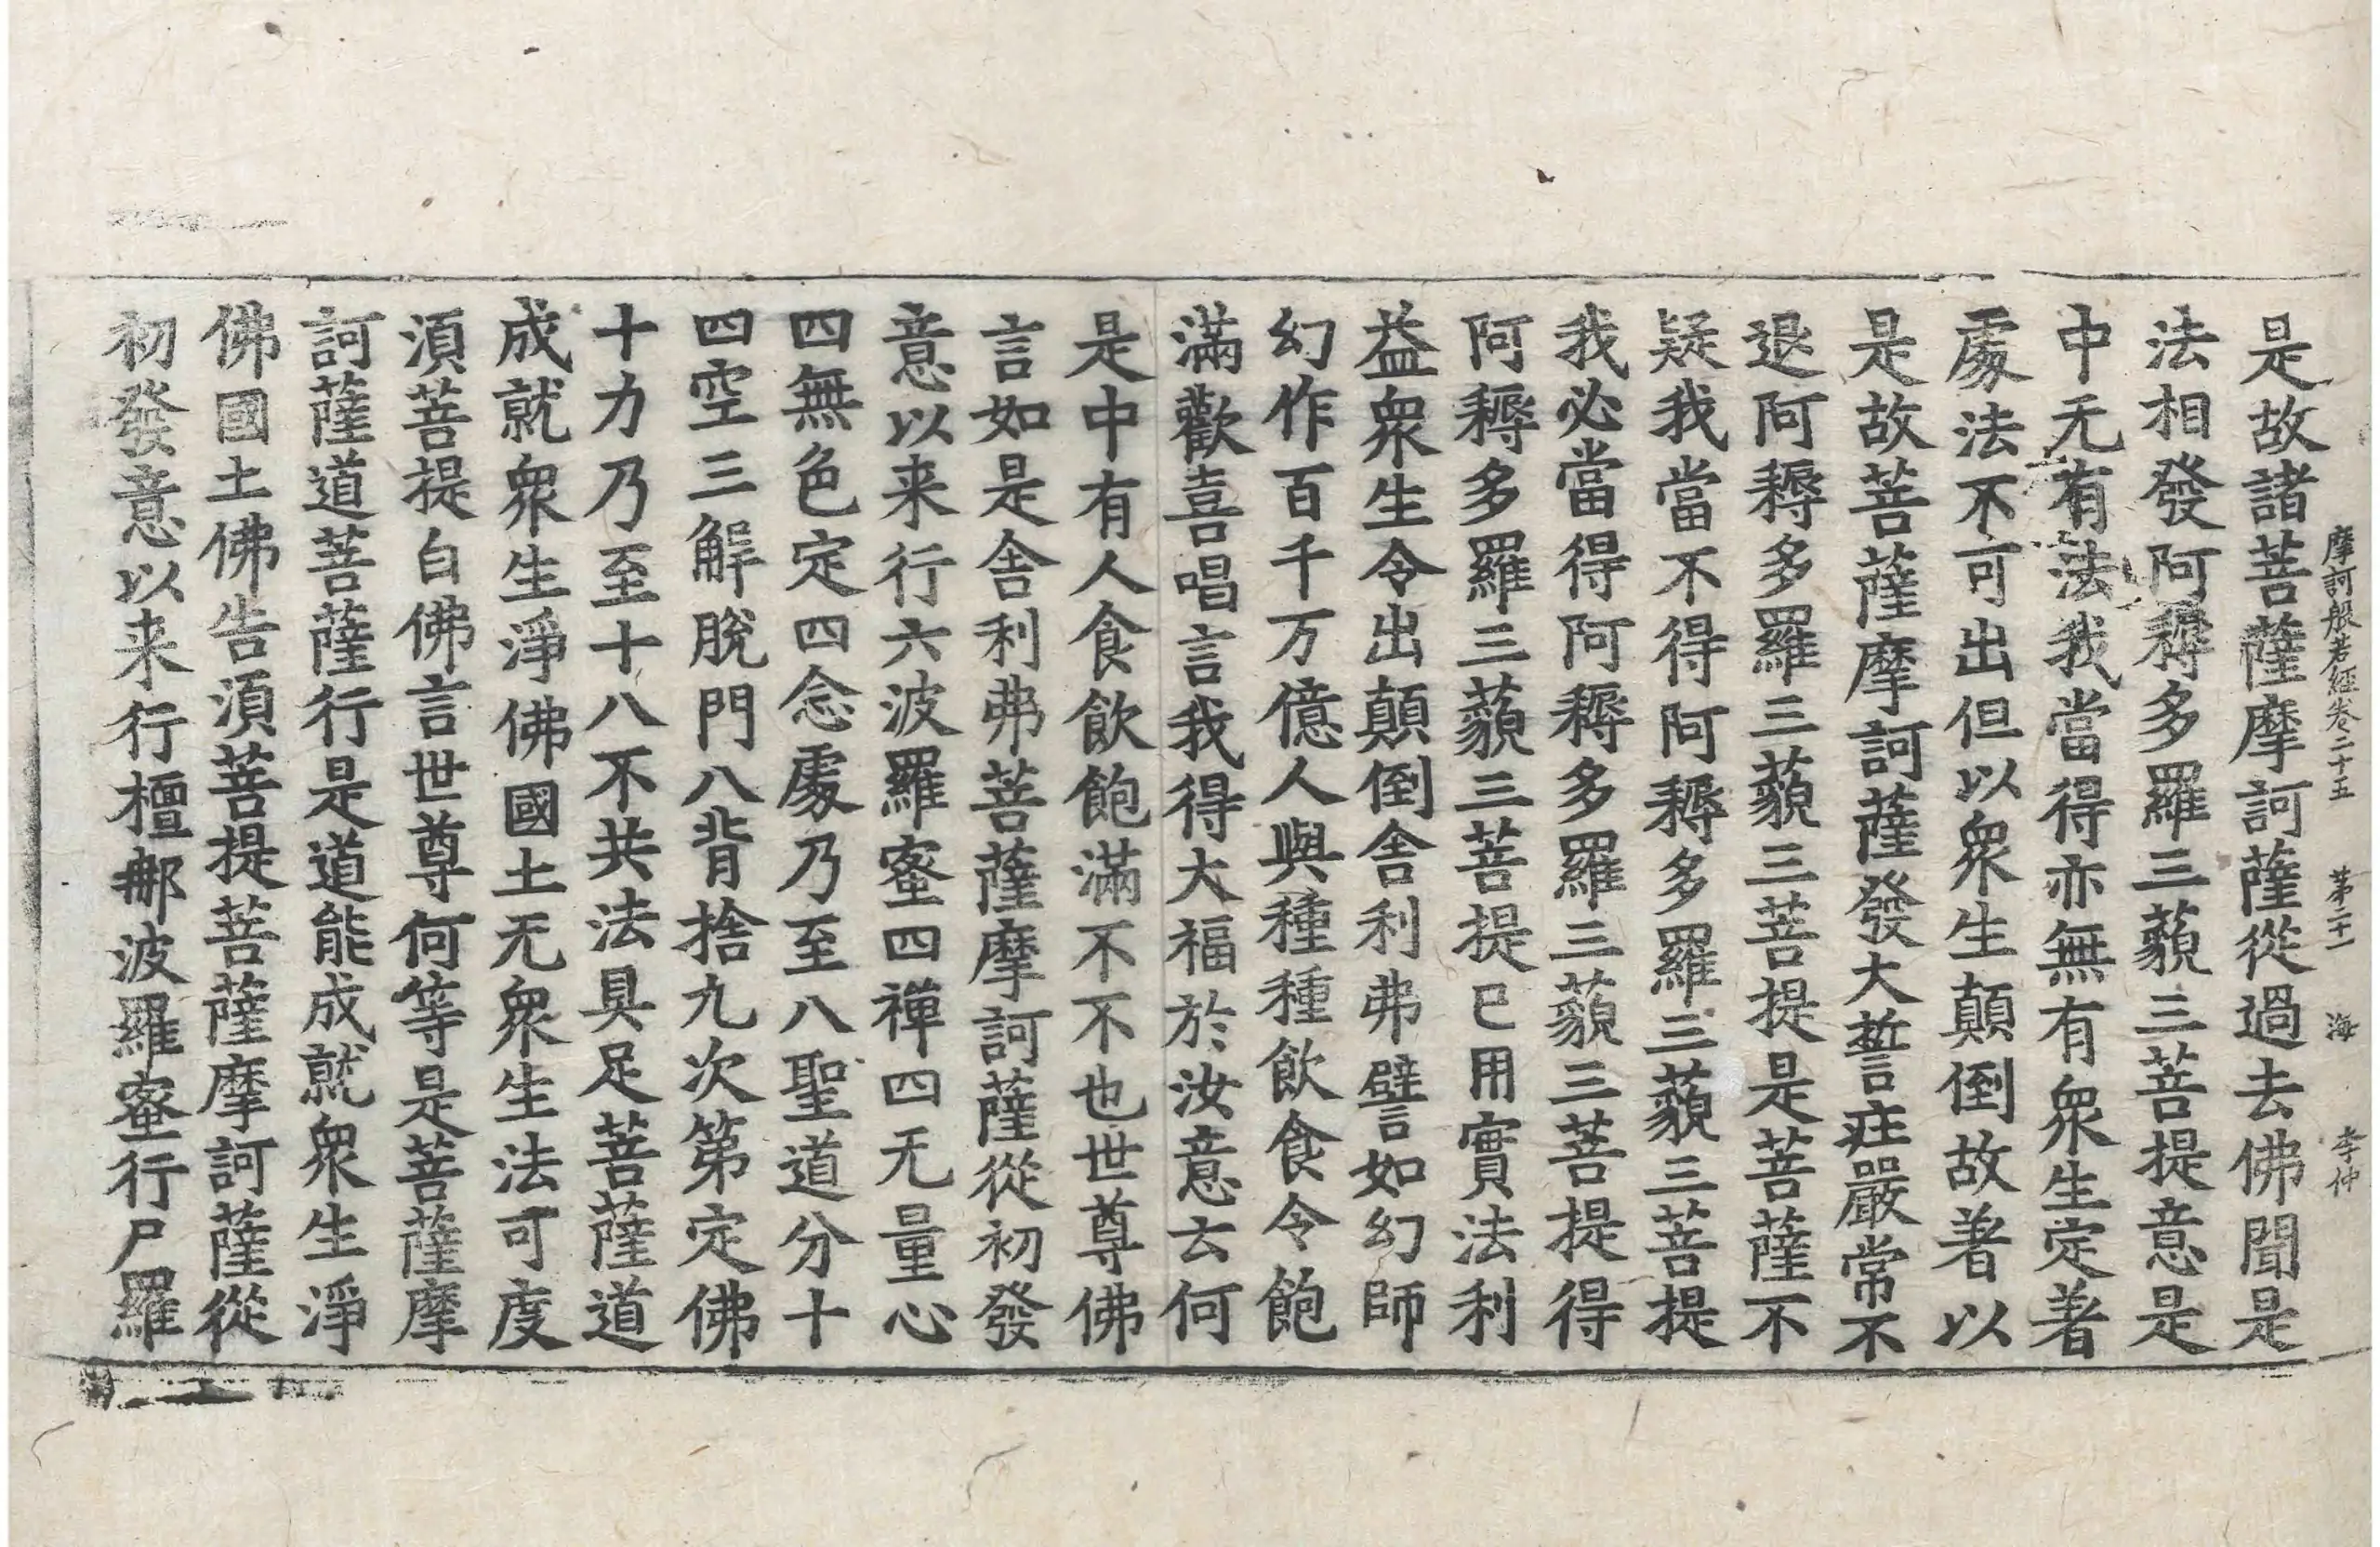 摩訶般若經卷二十五 苐二十一 海 李仲
是故諸菩薩摩訶薩從過去佛聞是
法相發阿耨多羅三藐三菩提意是
中无有法我當得亦無有眾生定著
處法不可出但以眾生顛倒故著以
是故菩薩摩訶薩發大誓疰嚴常不
退阿耨多羅三藐三菩提是菩薩不
疑我當不得阿耨多羅三藐三菩提
我必當得阿耨多羅三藐三菩提得
阿耨多羅三藐三菩提已用實法利
益眾生令出顛倒舍利弗譬如幻師
幻作百千万億人與種種飲食令飽
滿歡喜唱言我得大福於汝意云何
是中有人食飲飽滿不不也世尊佛
言如是舍利弗菩薩摩訶薩從初發
意以来行六波羅蜜四禪四无量心
四無色定四念處乃至八聖道分十
四空三解脫門八背捨九次第定佛
十力乃至十八不共法具足菩薩道
成就眾生淨佛國土无眾生法可度
湏菩提白佛言世尊何等是菩薩摩
訶薩道菩薩行是道能成就眾生淨
佛國土佛告湏菩提菩薩摩訶薩從
初發意以来行檀那波羅蜜行尸羅